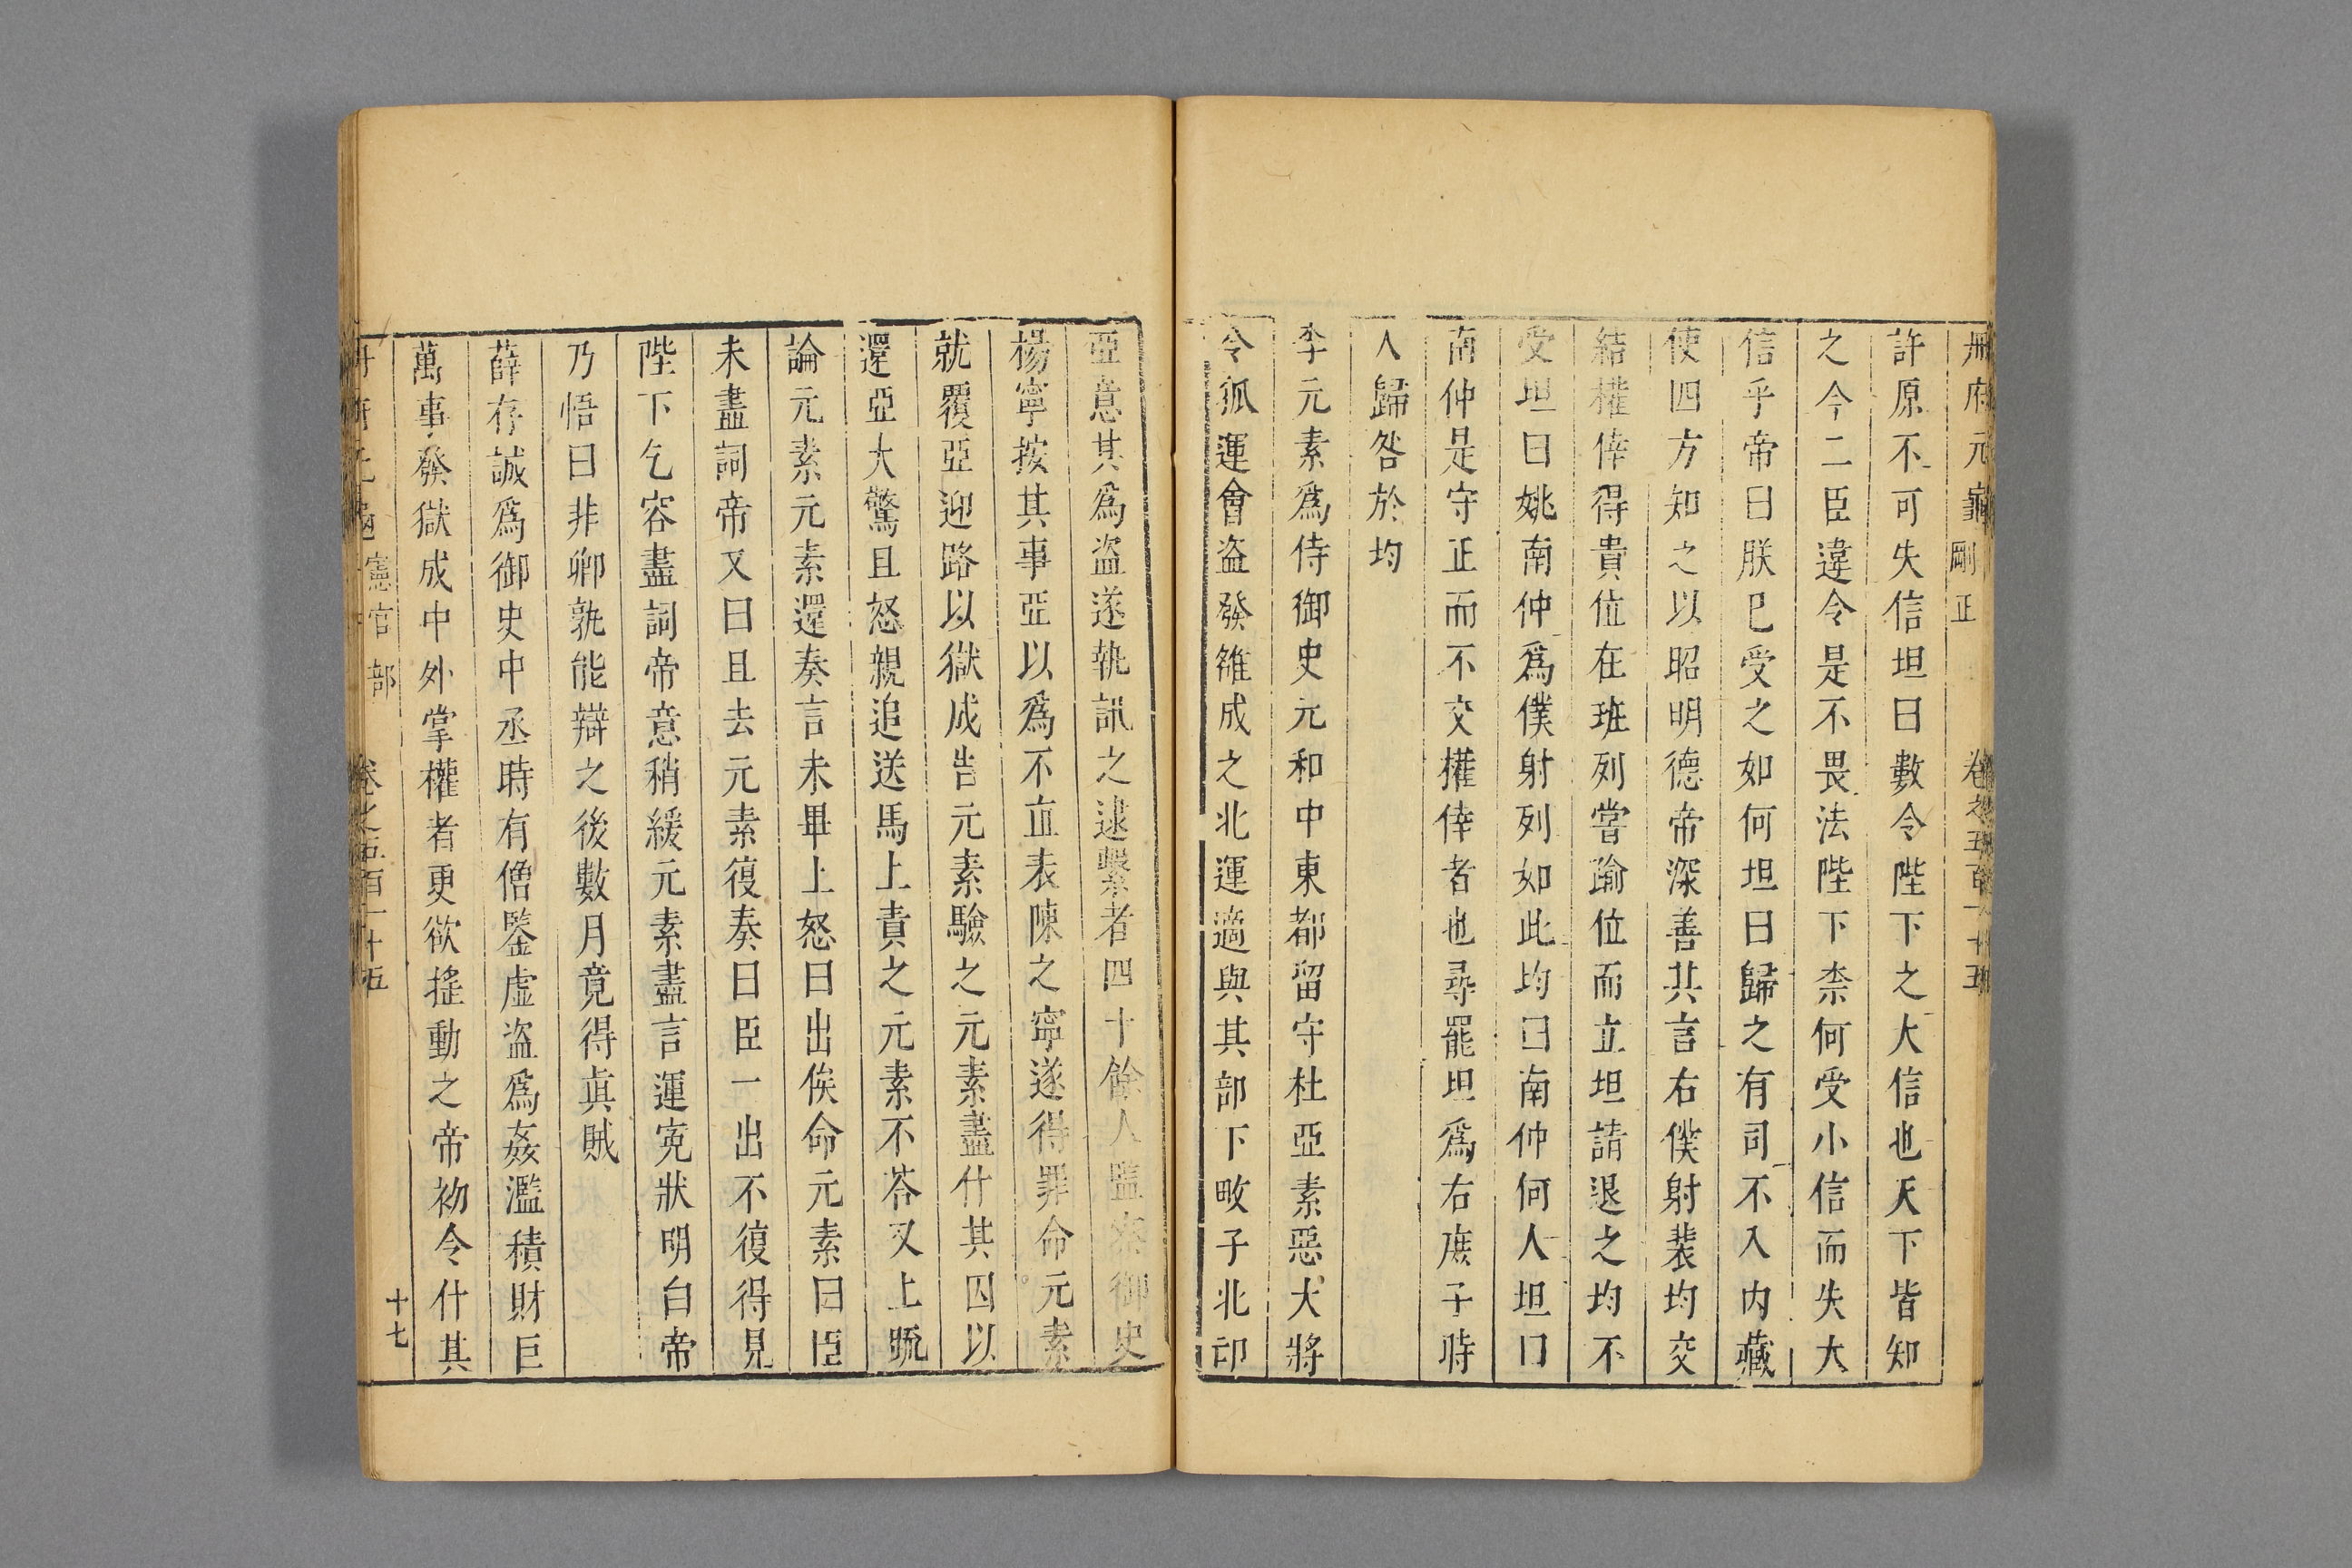 冊府元龜 剛正 卷之五百一十五
許原不可失信坦曰數令陛下之大信也天下皆知
之今二臣違令是不畏法陛下柰何受小信而失大
信乎帝曰朕已受之如何坦曰歸之有司不入内藏
使四方知之以昭明德帝深善其言右僕射裴均交
結權倖得貴位在班列嘗踰位而立坦請退之均不
受坦曰姚南仲爲僕射列如此均曰南仲何人坦曰
南仲是守正而不交權倖者也尋罷坦爲右庶子時
人歸咎於均
李元素爲侍御史元和中東都留守杜亞素惡大將
令狐運會盗發雒成之北運適與其部下畋于北邙
亞意其爲盗遂執訊之逮繫者四十餘人監察御史
楊寧按其事亞以爲不直表陳之寧遂得罪命元素
就覆亞迎路以獄成告元素驗之元素盡什其囚以
還亞大驚且怒親追送馬上責之元素不荅又上疏
論元素元素還奏言未畢上怒曰出俟命元素曰臣
未盡詞帝又曰且去元素復奏曰臣一出不復得見
陛下乞容盡詞帝意稍緩元素盡言運寃狀明白帝
乃悟曰非卿孰能辯之後數月竟得眞賊
薛存誠爲御史中丞時有僧鑒虚盗爲姦濫積財巨
萬事發獄成中外掌權者更欲摇動之帝初令什其
憲官部 卷之五百一十五 十七